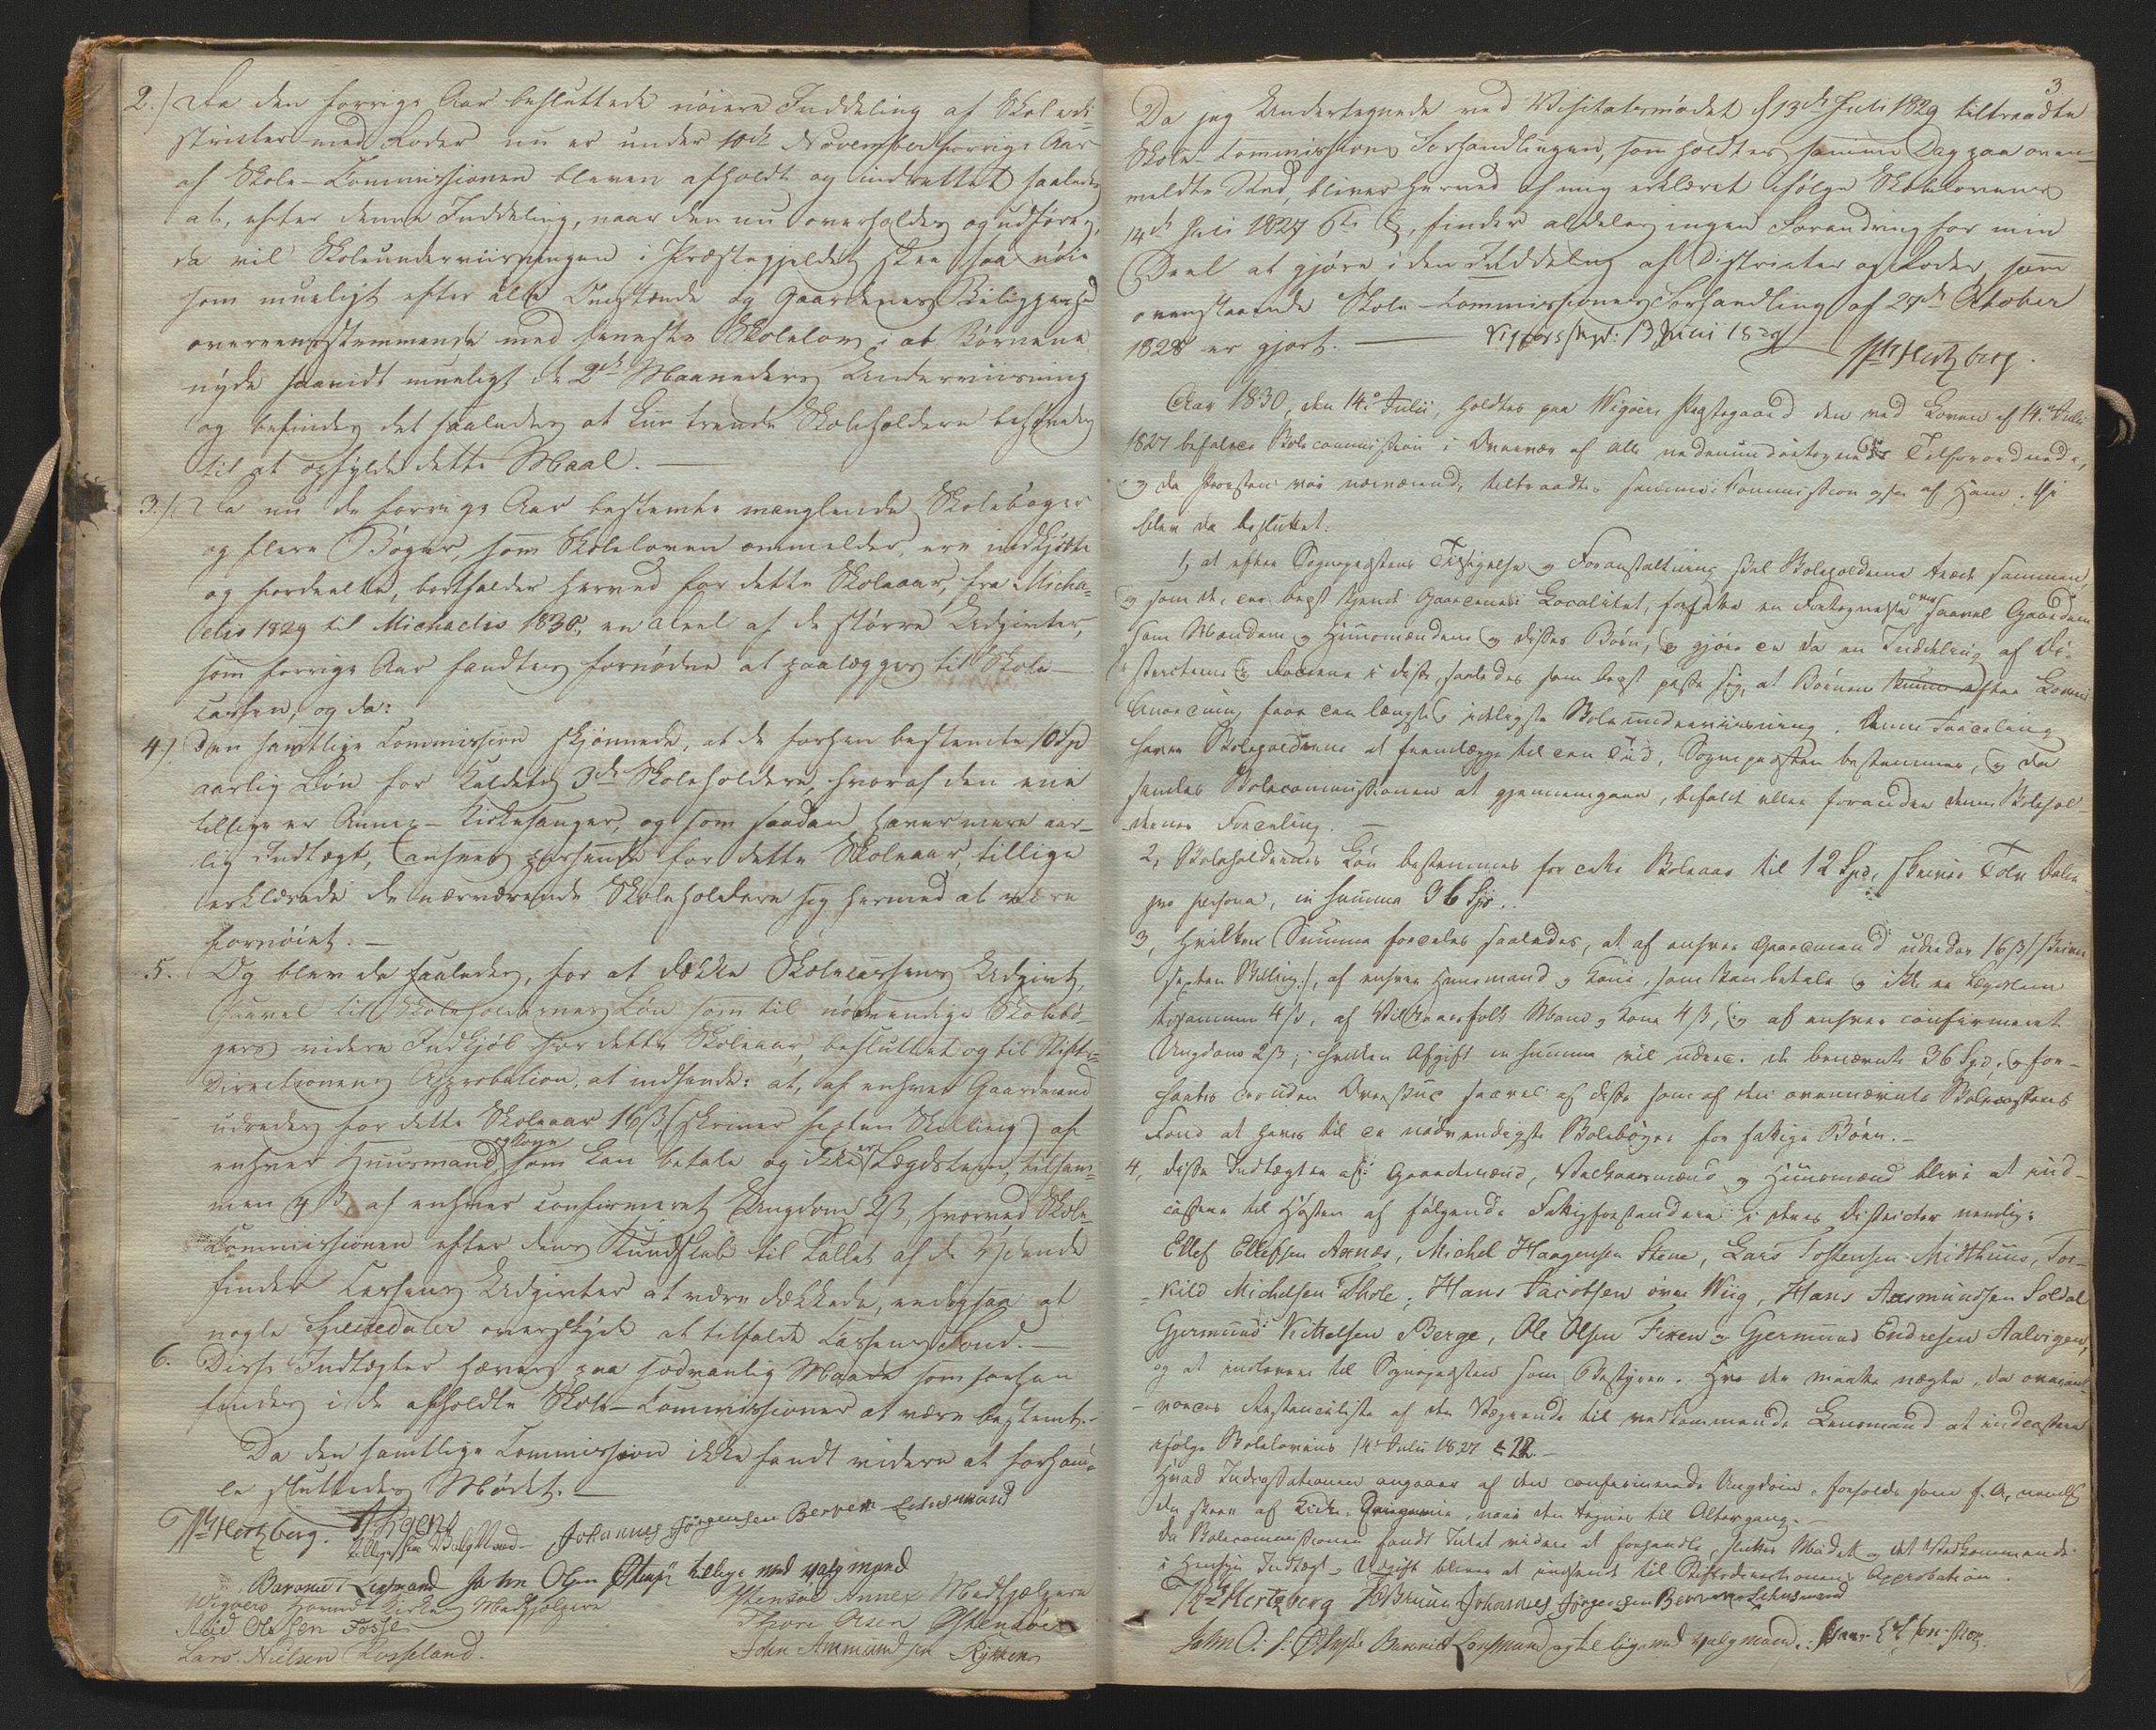 2.) Da den forrige Aar besluttede nöiere Inddeling af Skoledi-
stricter med Roder nu er under 10de November forrige Aar
af Skole-Commissionen bleven afholdt og indrettet saaledes
at, efter denne Inddeling, naar den nu overholdes og udføres,
da vil Skoleunderviisningen i Præstegjeldet skee saa nöie
som mueligt efter alle Omstænde og Gaardenes Beliggenhed
overeensstemmende med seneste Skolelov, i at Børnene
nyde saavidt mueligt de 2de Maaneders Underviisning
og befindes det saaledes at kun trende Skoleholdere behøves
til at opfylde dette Maal. —
3.) Da nu de forrige Aar bestemte manglende Skolebøger
og flere Bøger, som Skoleloven ommelder, ere indkjøbte
og fordeelte, bortfalder herved for dette Skoleaar, fra Micha-
elis 1829 til Michaelis 1830, en Deel af de større Udgivter,
som forrige Aar fandtes fornødne at paalægges til Skole-
cassen, og da:
4.) Den samtlige Commission skjønnede, at de forhen bestemte 10 Spd
aarlig Løn for Kaldets 3de Skoleholdere, hvoraf den ene
tillige er Annex-Kirkesanger, og som saadan haver mere aar-
lig Indtægt, ansees passende for dette Skoleaar, tillige
erklærede de nærværende Skoleholdere sig hermed at være
fornöiet. —
5. Og blev da saaledes, for at dække Skolecassens Udgivt,
saavel til Skoleholdernes Løn som til nödvendige Skolebö-
gers videre Indkjøb for dette Skoleaar, besluttet og til Stifts-
Directionens Approbation, at indsende: at, af enhver Gaardmand
udredes for dette Skoleaar 16 ß (skriver sexten Skilling) af
enhver Huusmand og Kone som kan betale og ikke er Lægdslem, tilsam-
men 4 ß, af enhver confirmeret Ungdom 2 ß, hvorved Skole-
Commissionen efter dens Kundskab til Tallet af de Ydende
finder Cassens Udgivter at være dækkede, endogsaa at
nogle Speciedaler overskyde at tilfalde Cassens Fond. —
6. Disse Indtægter hæves paa sædvanlig Maade som forhen
findes i de afholdte Skole-Commissioner at være bestemt. —
Da den samtlige Commission ikke fandt videre at forhand-
le sluttedes Mødet. —
Hertzberg. Johannes Jørgensen Berven Lehnsmand
Baroniet Leensmand John Olsen tillige med valgmand
Wigøers Hoved Kirkes Medhjælpere Ostensøe Annex Medhjælpere
Olsen Fosse Thore Olsen Ostensøe
Lars Nielsen Rosseland. John Ammundsen Rykken
3
Da jeg Undertegnede ved Visitatsmødet d 13de Juli 1829 tiltraadte
Skole-Commissions Forhandlingen, som holdtes samme Dag paa oven-
meldte Sted, bliver herved af mig erklæret ifølge Skolelovens
14de Juli 1827 6te §, finder aldeles ingen Forandring for min
Deel at gjøre i den Inddeling af Districter og Roder, som
ovenstaaende Skole-Commissions Forhandling af 27de October
1828 er gjort. — 13 Junii 1829
Hertzberg.
Aar 1830, den 14. Julii, holdtes paa Wigøers Præstegaard den ved Loven af 14. Julii
1827 befalede Skolecommission i Overvær af alle nedenundertegnede Tilforordnede,
og da Provsten var nærværende, tiltraadtes samme Commission og saa af ham. Her
blev da besluttet.
1, at efter Sognepræstens Tilsigelse og Foranstaltning skal Skoleholderne træde sammen
og som de, der bedst kjende Gaardenes Localitet, forfatte en Fortegnelse over saavel Gaardene
som Mændene og Huusmændene og disses Børn, og gjøre da en Inddeling af Di-
stricterne og Roderne i disse, saaledes som bedst passe sig, at Børnene efter Lovens
Anordning faae den længste og ideligste Skoleunderviisning. Denne Fordeling
haver Skoleholderne at fremlægge til den Tid, Sognepræsten bestemmer, og da
samles Skolecommissionen at gjennemgaae, bifalde eller forandre denne Skolehol-
dernes Fordeling. —
2, Skoleholdernes Løn bestemmes for dette Skoleaar til 12 Spd, skriver Tolv Daler
pro persona, in summa 36 Spd..
3, Hvilken Summa fordeles saaledes, at af enhver Gaardmand udredes 16 ß skriver
sexten Skilling, af enhver Huusmand og Kone, som kan betale og ikke er Lægdslem
tilsammen 4 ß, af Vilkaarsfolk Mand og Kone 4 ß, og af enhver confirmeret
Ungdom 2 ß; hvilken Afgift in summa vil udrede de benævnte 36 Spd, og for-
haabes desuden Overskud saavel af disse som af den ovennævnte Skolecassens
Fond at haves til de nødvendigste Skolebøger for fattige Børn. —
4, disse Indtægter af Gaardmænd, Vilkaarsmænd og Huusmænd blive at ind-
cassere til Høsten af følgende Fattigforstandere i deres Districter nemlig:
Ellef Ellefsen Axnæs, Michel Haagensen Steine, Lars Tostensen Mitthuus, Tor-
kild Michelsen Thole, Hans Jacobsen övre Wiig, Hans Aasmundsen Soldal
Gjermund Kittelsen Berge, Ole Olsen Fixen og Gjermund Endresen Aalvigen,
og at indlevere til Sognepræsten som Bestyrer. Hvo der maatte nægte, da overant-
vordes Restanceliste af de Vægrende til vedkommende Lensmand at indcassere
ifølge Skolelovens 14. Julii 1827 § 22. —
Hvad Indrestationen angaaer af den confirmerede Ungdom, forholdes som f. A, nemlig
den skeer af Kirke-, naar den tegner til Altergang. —
Da Skolecommissionen fandt Intet videre at forhandle, sluttes Mødet og det Vedkommende
i Hensyn Indtægt og Udgift bliver at indsende til Stiftsdirectionens Approbation.
Hertzberg Johannes Jørgensen Berven Lehnsmand
John Baroniet Lensmand og tillige med valgmand.